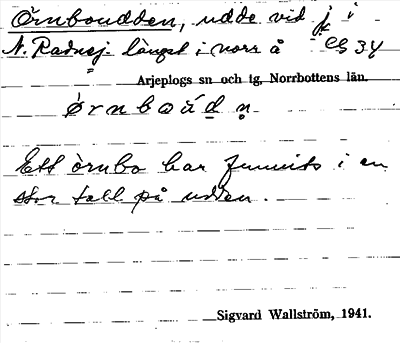 Örnboudden, udde vid j i
N. Radnej längst i norr å eg 34
Arjeplogs sn och tg, Norrbottens län.
ørnboúdn
Ett örnbo har funnits i en
stor tall på udden.
Sigvard Wallström, 1941.